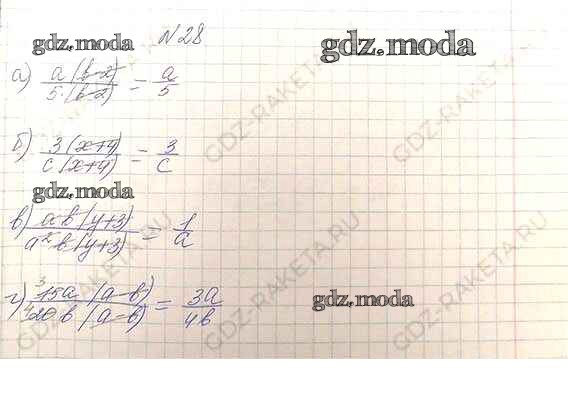 №28
gdz.moda gdz.moda
а) a(b-2)/5·(b-2) = a/5
б) 3(x+4)/c(x+4) = 3/c
gdz.moda
в) ab(y+3)/a²b(y+3) = 1/a
г) 15a(a-b)/20b(a-b) = 3a/4b
gdz.moda
GDZ-RAKETA.RU
GDZ-RAKETA.RU
GDZ-RAKETA.RU
GDZ-RAKETA.RU
GDZ-RAKETA.RU
GDZ-RAKETA.RU